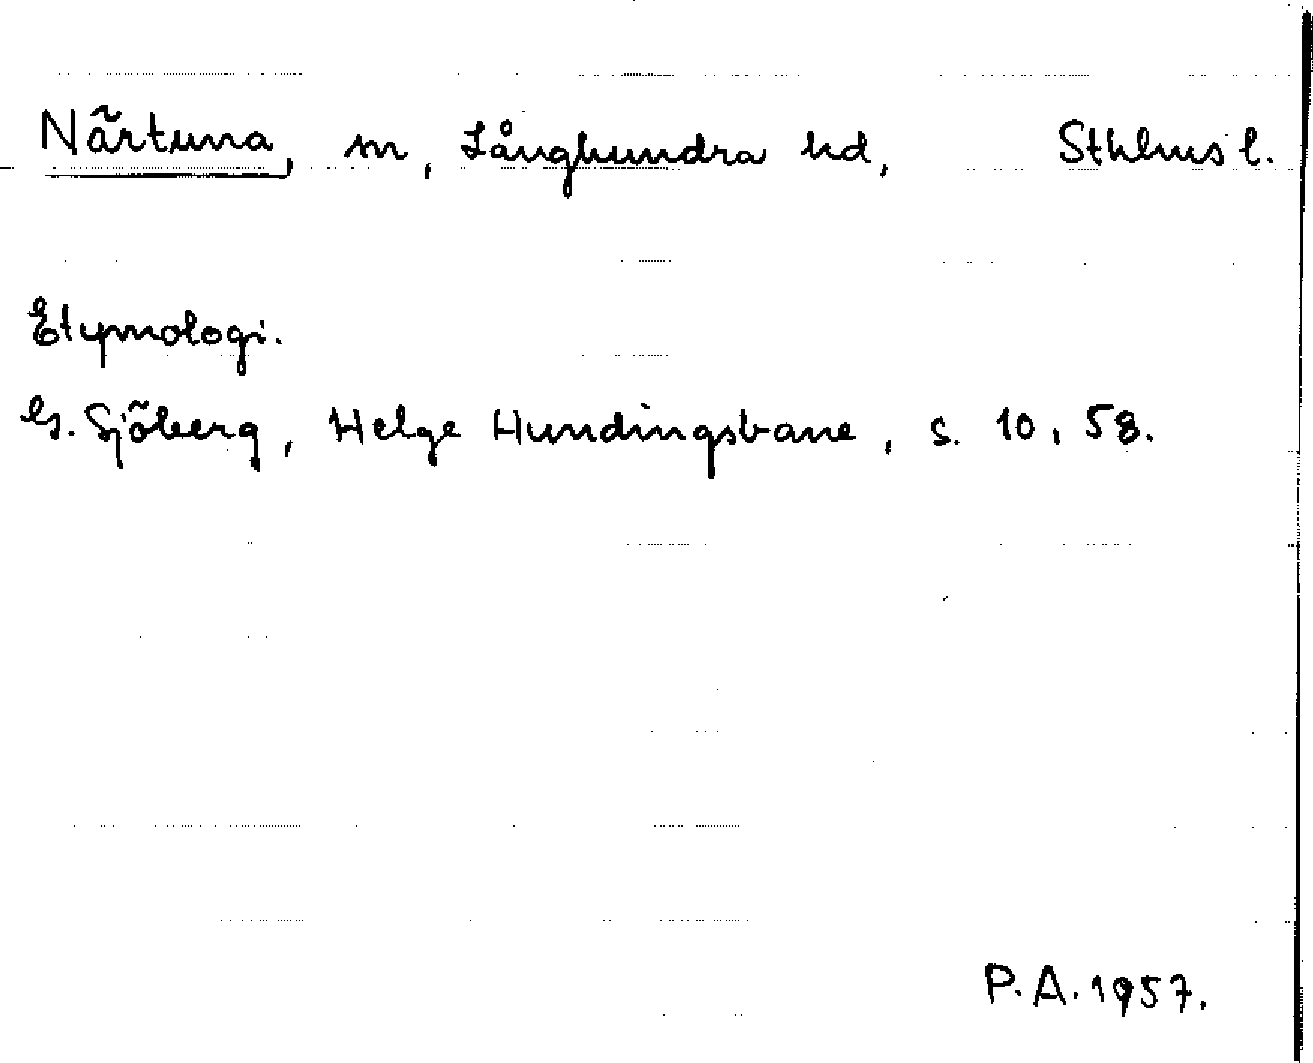 Närtuna, sn, Långhundra hd, Sthlms l.
Etymologi.
G. Sjöberg, Helge Hundingsbane, s. 10, 58.
P.A. 1957.